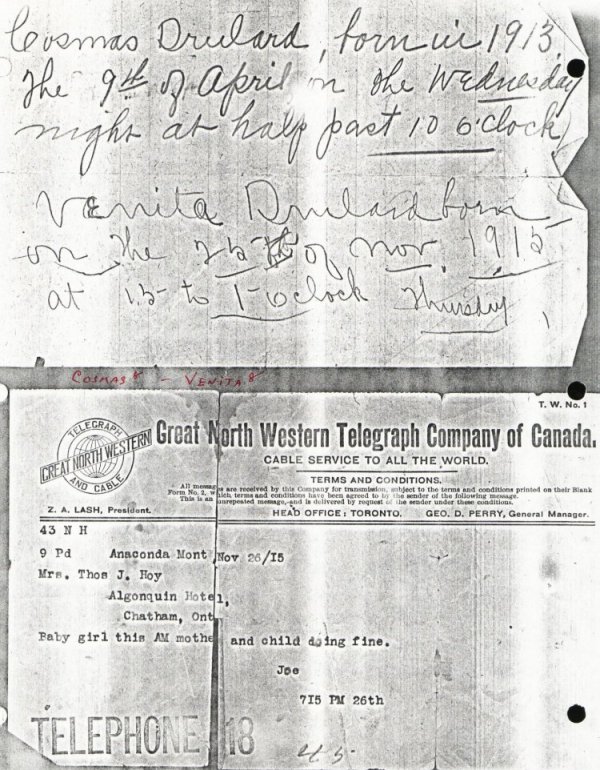 Cosmas Drulard, born in 1913
the 9th of April on the Wednesday
night at half past 10 o'clock
Venita Drulard born
on the 25th of Nov. 1915
at 15 to 1 o'clock Thursday
Cosmas - Venita
T. W. No. 1
TELEGRAPH
GREAT NORTH WESTERN
AND CABLE
Great North Western Telegraph Company of Canada.
CABLE SERVICE TO ALL THE WORLD.
TERMS AND CONDITIONS.
All messages are received by this Company for transmission, subject to the terms and conditions printed on their Blank
Form No. 2, which terms and conditions have been agreed to by the sender of the following message.
This is an unrepeated message, and is delivered by request of the sender under these conditions.
Z. A. LASH, President.
HEAD OFFICE: TORONTO.
GEO. D. PERRY, General Manager.
43 N H
9 Pd Anaconda Mont Nov 26/15
Mrs. Thos J. Hoy
Algonquin Hotel,
Chatham, Ont
Baby girl this AM mother and child doing fine.
Joe
715 PM 26th
TELEPHONE 18